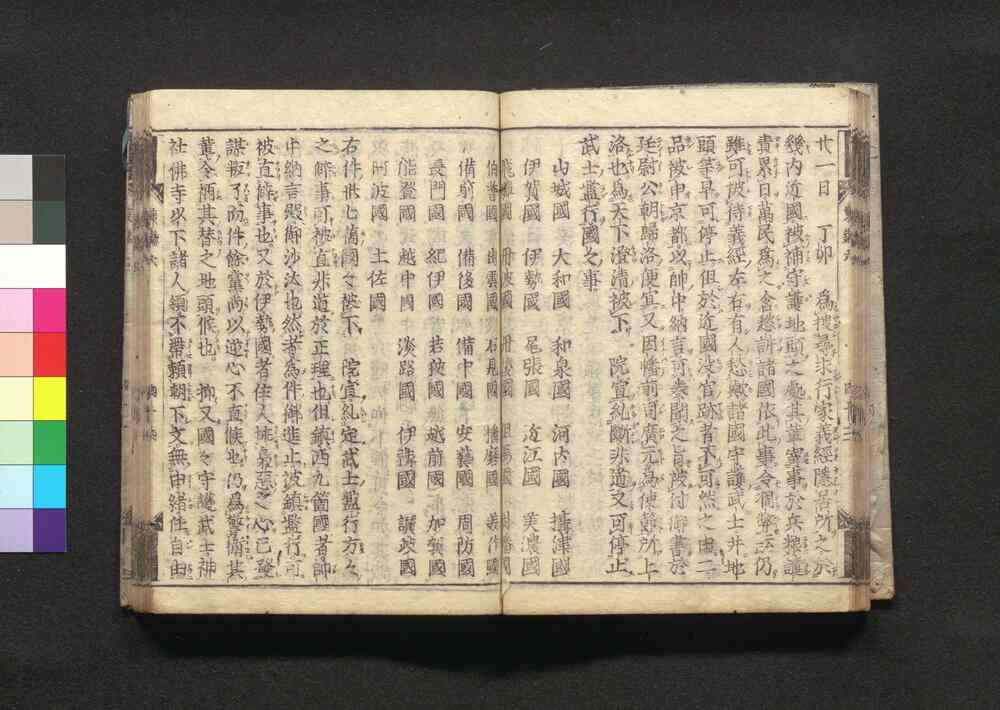 廿一日　丁卯　為捜尋求行家義經隱居所々於
畿内近國被補守護地頭之處其輩寄事於兵粮譴
責累日萬民為之含愁訴諸國依此事令凋弊云仍
雖可被待義經左右有人愁歟諸國守護武士并地
頭等早可停止但於近國没官跡者不可然之由二
品被申京都以帥中納言可奏聞之旨被付御書於
廷尉公朝歸洛便宜又因幡前司廣元為使節所上
洛也為天下澄清被下　院宣糺斷非道又可停止
武士濫行國々事
山城國　大和國　和泉國　河内國　攝津國
伊賀國　伊勢國　尾張國　近江國　美濃國
飛騨國　丹波國　丹後國　但馬國　因幡國
伯耆國　出雲國　石見國　播磨國　美作國
備前國　備後國　備中國　安藝國　周防國
長門國　紀伊國　若狹國　越前國　加賀國
能登國　越中國　淡路國　伊豫國　讚岐國
阿波國　土佐國
右件卅七箇國々被下　院宣糺定武士濫行方々
之僻事可被直非道於正理也但鎮西九箇國者帥
中納言殿御沙汰也然者為件御進止被鎮濫行可
被直僻事也又於伊勢國者住人挾梟惡之心已發
謀叛了而件餘黨尚以逆心不直候也仍為警衛其
輩令柄其替之地頭候也　抑又國々守護武士神
社佛寺以下諸人領不帶頼朝下文無由緒任自由